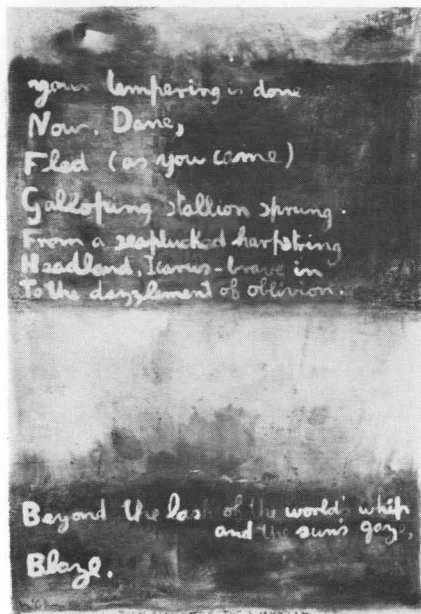 your tempering is done
Now. Dane,
Fled (as you came)
Galloping stallion sprung.
From a seaplucked harpstring
Headland, Icarus-brave in
To the dazzlement of oblivion.
Beyond the lash of the world's whip
and the sun's gaze,
Blaze.